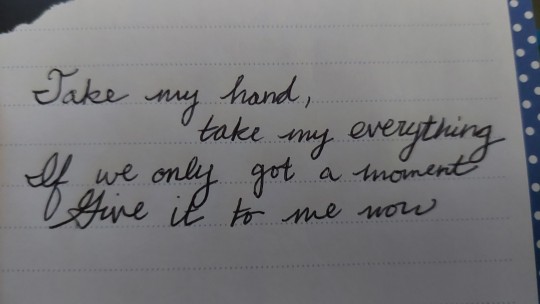 Take my hand,
take my everything
If we only got a moment
Give it to me now